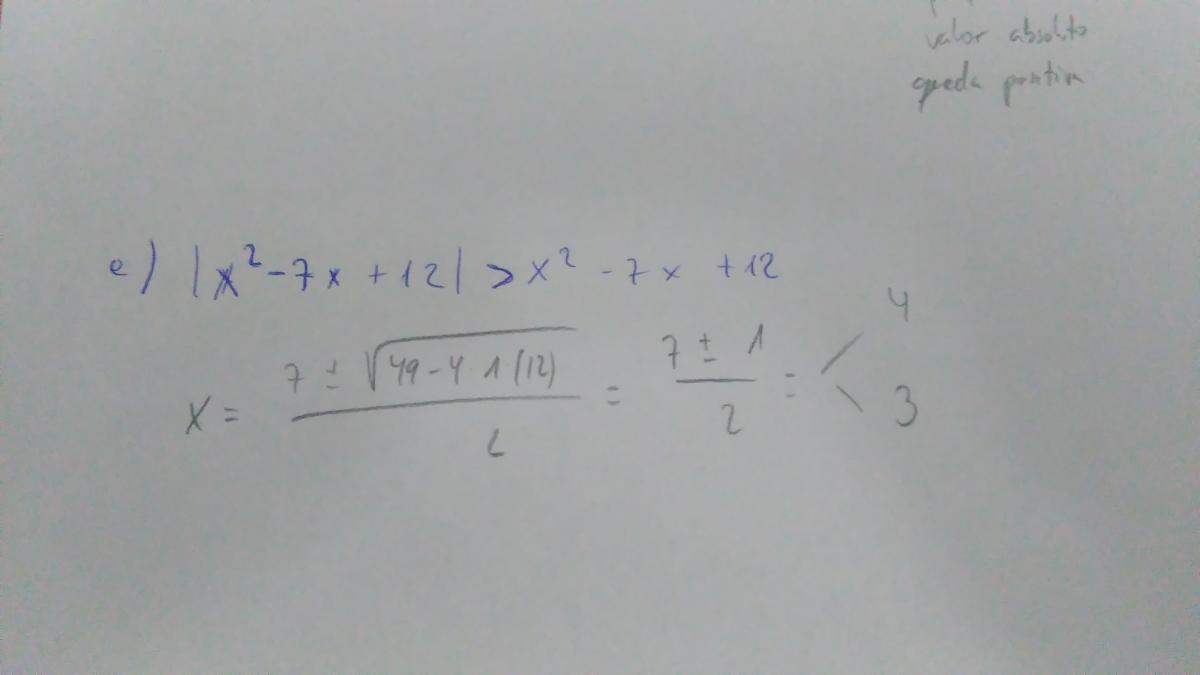 valor absoluto
queda
e) |x² - 7x + 12| > x² - 7x + 12
x = 7 ± √49 - 4 · 1 (12) / 2 = 7 ± 1 / 2 = < 4 3